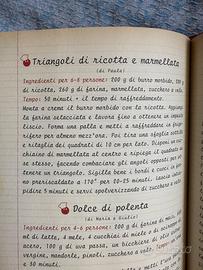 Triangoli di ricotta e marmellata
(di Paola)
Ingredienti per 6-8 persone: 200 g di burro morbido, 200 g
di ricotta, 260 g di farina, marmellata, zucchero a velo.
Tempo: 50 minuti + il tempo di raffreddamento.
Monta a crema il burro morbido con la ricotta. Aggiungi
la farina setacciata e lavora fino a ottenere un impasto
liscio. Forma una palla e metti a raffreddare in frigori-
fero per almeno mezz'ora. Poi tira una sfoglia sottile
e ritaglia dei quadrati di 10 cm per lato. Disponi un cuc-
chiaino di marmellata al centro e ripiega la pasta su di
se stessa, facendo combaciare gli angoli opposti per ot-
tenere un triangolo. Sigilla bene i bordi e cuoci in forno
preriscaldato a 170° per 20-25 minuti. Lascia intie-
pidire 5 minuti e servi spolverizzando di zucchero a velo.
Dolce di polenta
(di Maria e Giulio)
Ingredienti per 4-6 persone: 200 g di farina di mais,
ml di latte, 4 cucchiai di
acero, 100 g di uva passa, un bicchiere di
vergine, mandorle, pinoli, zucchero a velo.
e 30 minuti.